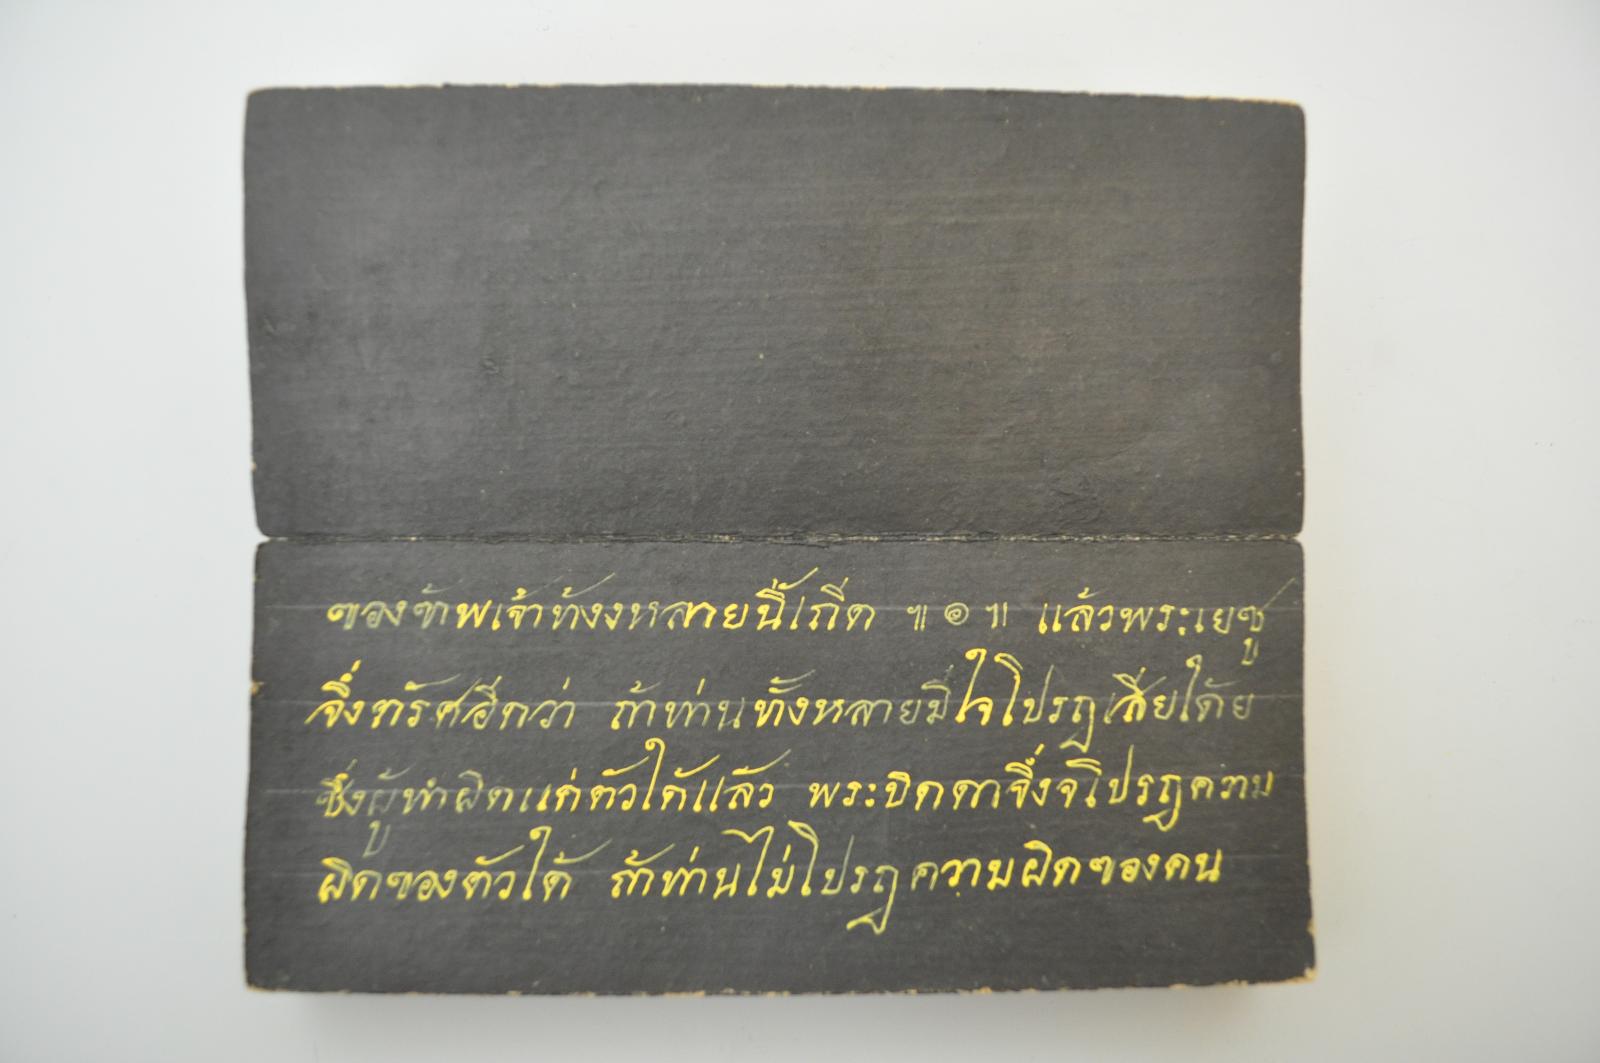 ของข้าพเจ้าท้งงหลายนี้เถีด ๚ ๏ ๚ แล้วพระเยซู
จึ่งทรัศอีกว่า ถ้าท่านทั้งหลายมีใจโปรฎเสียได้ย
ซึ่งผู้ทำผิดแก่ตัวได้แล้ว พระบิดดาจึ่งจโปรฎความ
ผิดของตัวได้ ถ้าท่านไม่โปรฎความผิดของคน